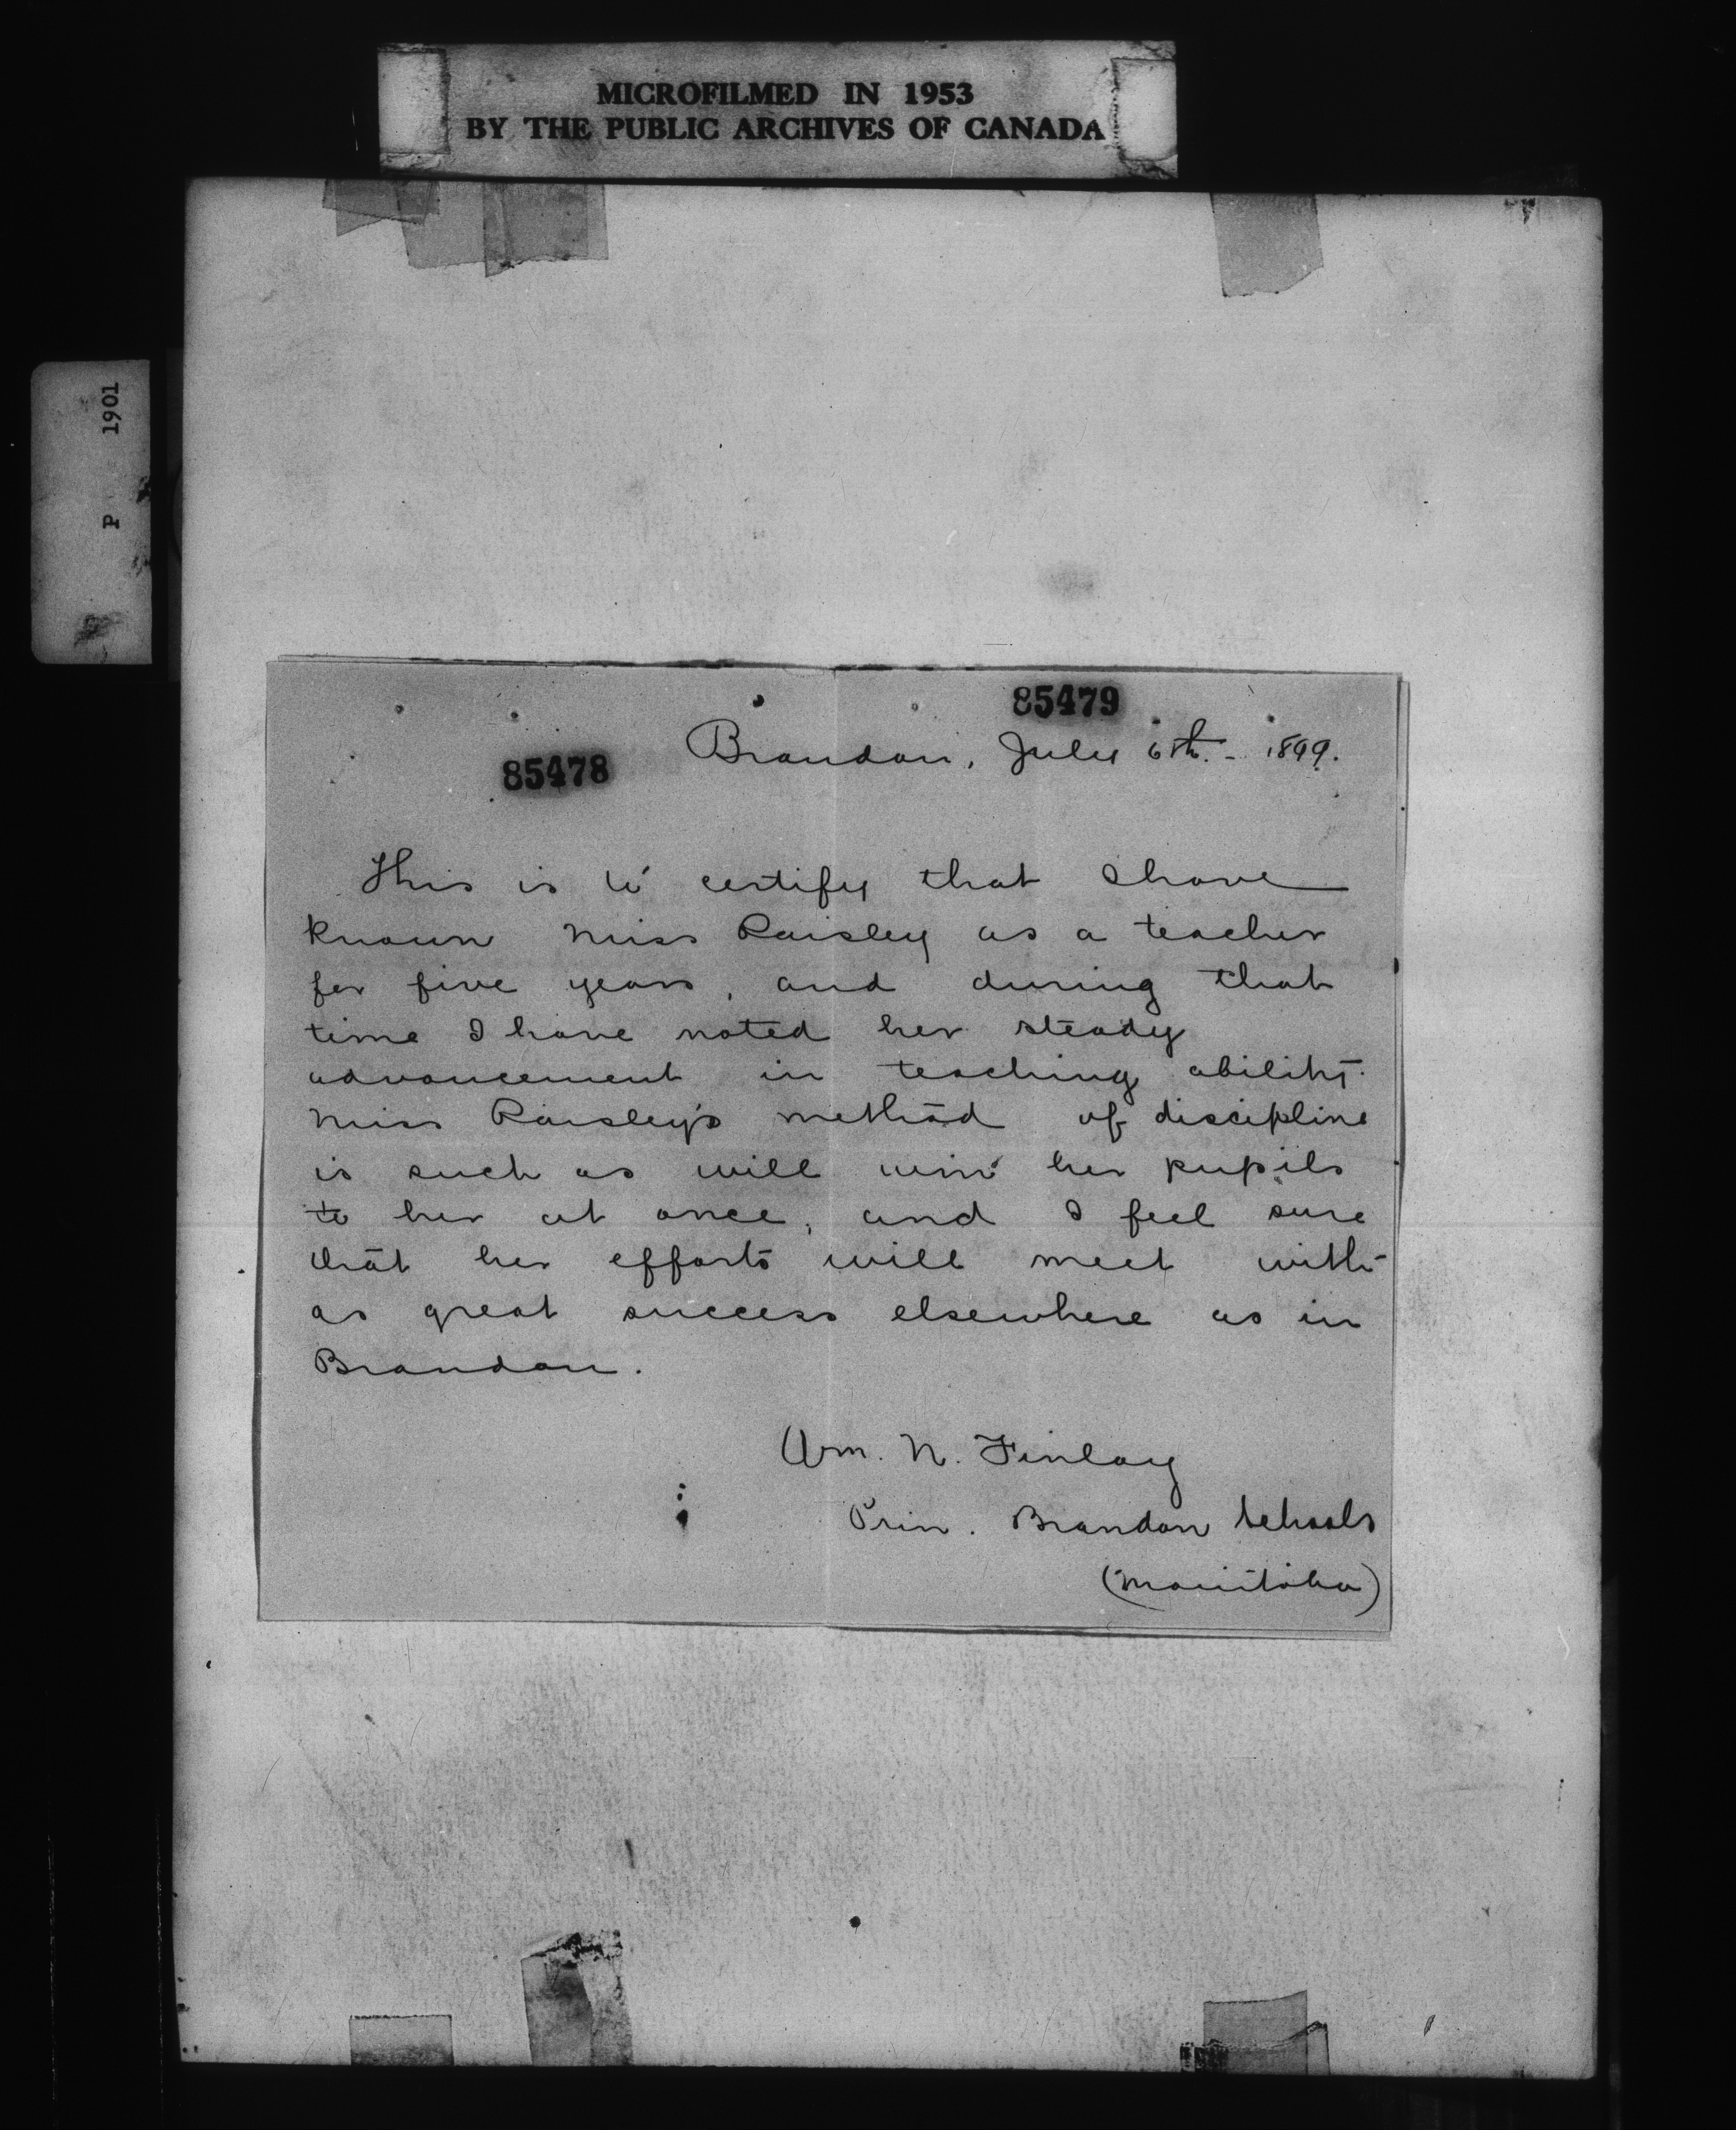 MICROFILMED IN 1953
BY THE PUBLIC ARCHIVES OF CANADA
P 1901
85479
85478
Brandon, July 6th. - 1899.
This is to certify that I have
known Miss Paisley as a teacher
for five years, and during that
time I have noted her steady
advancement in teaching ability.
Miss Paisley's method of discipline
is such as will win her pupils
to her at once, and I feel sure
that her efforts will meet with
as great success elsewhere as in
Brandon.
Wm. N. Finlay
Prin. Brandon Schools
(Manitoba)